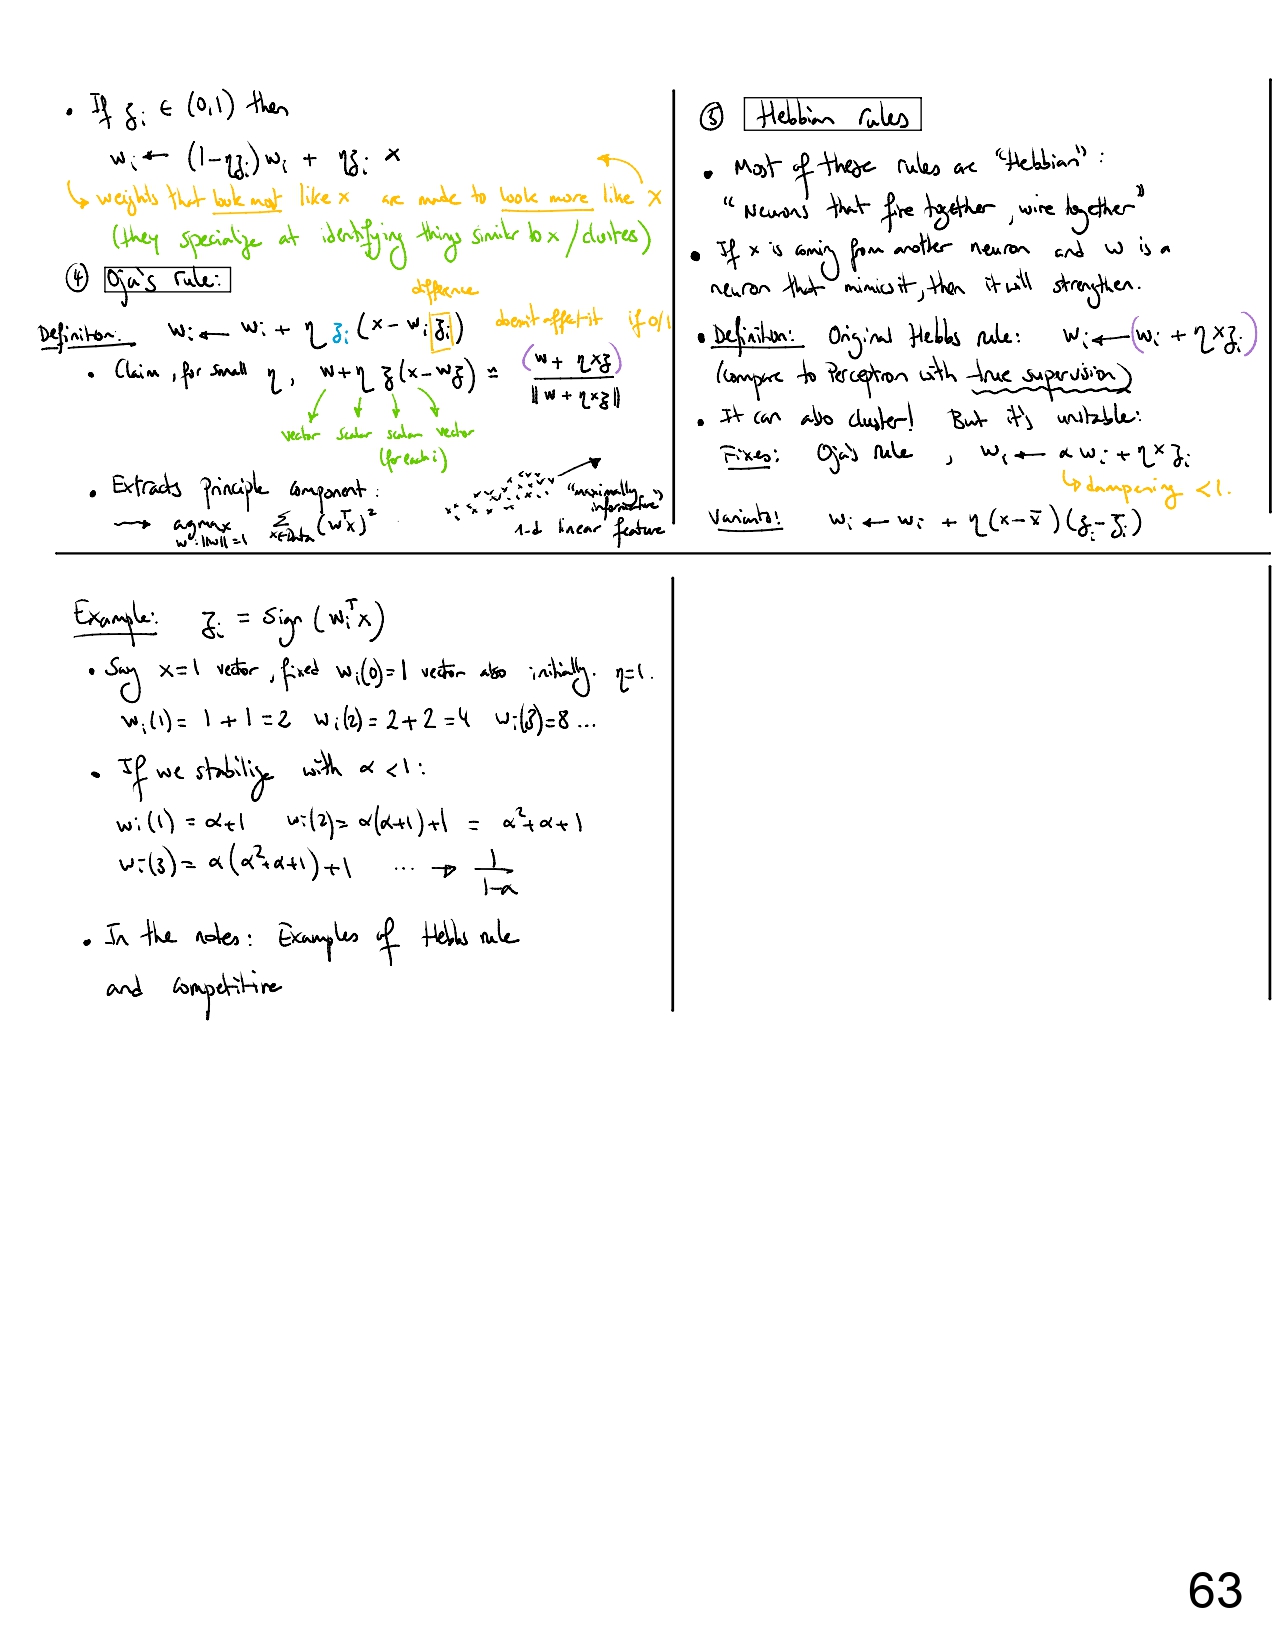 • If z_i ∈ (0,1) then
w_i ← (1-ηz_i)w_i + ηz_i x
↳ weights that look most like x are made to look more like x
(they specialize at identifying things similar to x / clusters)
④ Oja's rule:
difference
Definition: w_i ← w_i + η z_i (x - w_i z_i) doesn't affect it if 0/1
• Claim, for small η, w + η z(x - wz) ≈ (w + ηxz) / ||w + ηxz||
vector scalar scalar vector
(for each i)
• Extracts principle component:
→ argmax w:||w||=1 Σ x∈Data (wᵀx)²
"maximally informative"
1-d linear feature
⑤ Hebbian rules
• Most of these rules are "Hebbian":
"Neurons that fire together, wire together"
• If x is coming from another neuron and w is a
neuron that mimics it, then it will strengthen.
• Definition: Original Hebbs rule: w_i ← (w_i + ηxz_i)
(compare to Perceptron with true supervision)
• It can also cluster! But it's unstable:
Fixes: Oja's rule, w_i ← αw_i + ηxz_i
↳ dampering <1.
Variants: w_i ← w_i + η(x - x̄)(z_i - z̄_i)
Example: z_i = sign(w_iᵀx)
• Say x=1 vector, fixed w_i(0)=1 vector also initially. η=1.
w_i(1) = 1+1=2 w_i(2) = 2+2=4 w_i(3)=8 ...
• If we stabilize with α<1:
w_i(1) = α+1 w_i(2) = α(α+1)+1 = α²+α+1
w_i(3) = α(α²+α+1)+1 ... → 1/(1-α)
• In the notes: Examples of Hebbs rule
and competitive
63